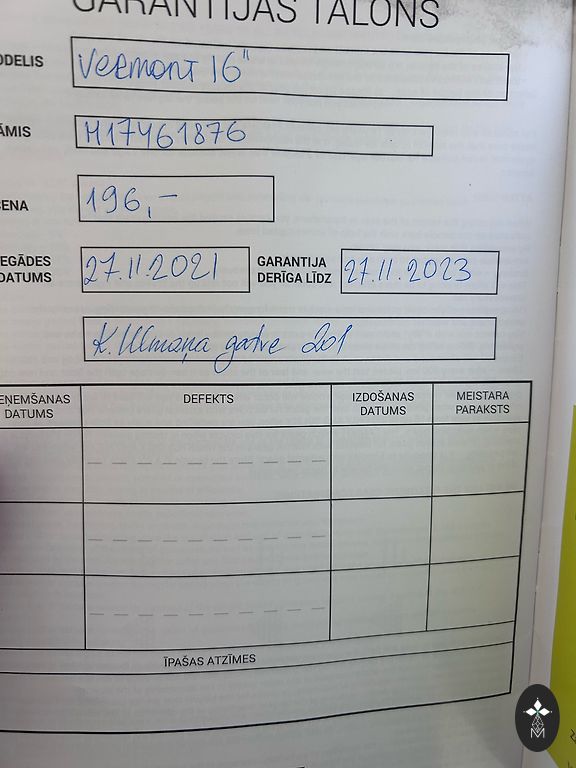 GARANTIJAS TALONS
ODELIS Vermont 16"
ĀMIS H17461876
CENA 196,-
EGĀDES DATUMS 27.11.2021 GARANTIJA DERĪGA LĪDZ 27.11.2023
K. Ulmaņa gatve 201
EŅEMŠANAS DATUMS DEFEKTS IZDOŠANAS DATUMS MEISTARA PARAKSTS
ĪPAŠAS ATZĪMES